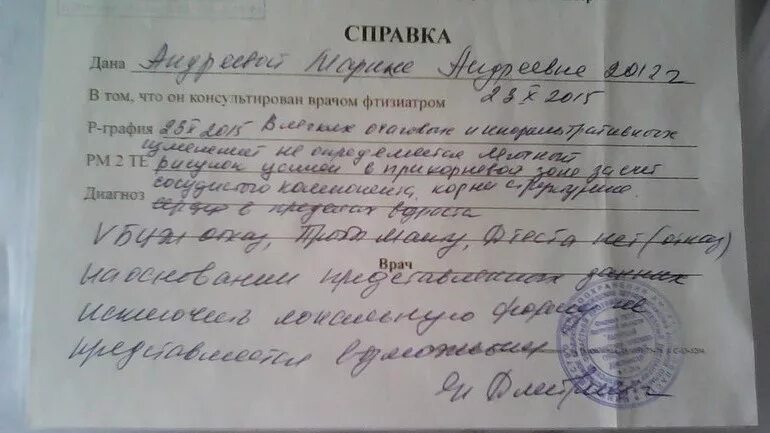 СПРАВКА
Дана Андреевой Марине Андреевне 2012 г
В том, что он консультирован врачом фтизиатром 23 X 2015
Р-графия 23 X 2015 В легких очаговых и инфильтративных
изменений не определяется Легочный
РМ 2 ТЕ рисунок усилен в прикорневой зоне за счет
сосудистого компонента, корни структурные
Диагноз сердце в пределах возраста
V БЦЖ отказ, Проба Манту, Дтеста нет (отказ)
Врач
на основании представленных данных
исключить локальную форму
представляется возможным